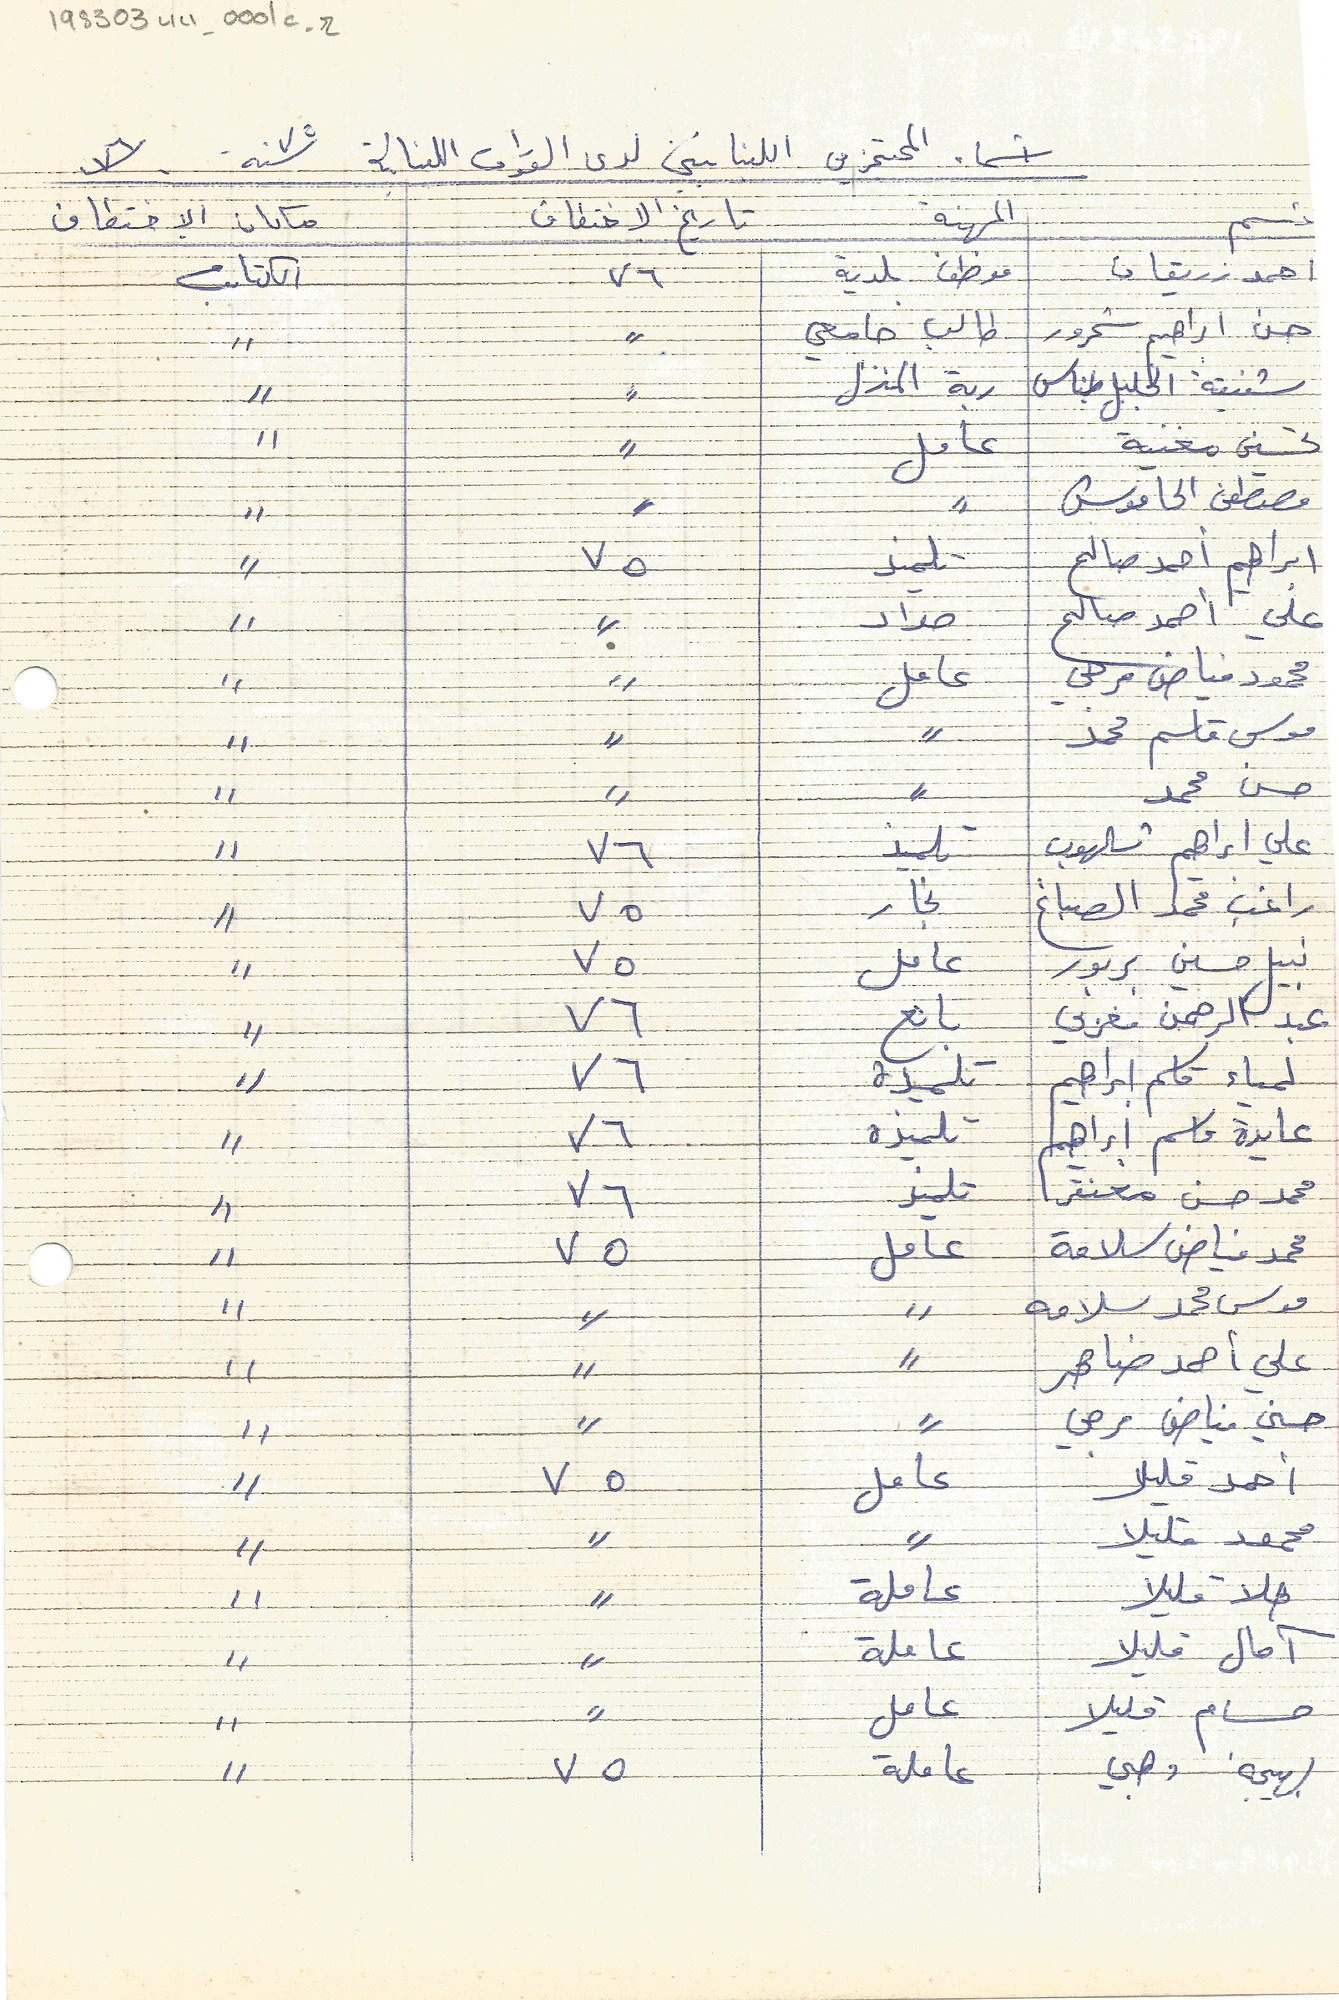 198303uu_0001c.r
أسماء المحتجزين اللبنانيين لدى القوات اللبنانية سنة
الاسم المهنة تاريخ الاختطاف مكان الاختطاف
احمد زريقات موظف بلدية ٧٦ الكتائب
حسن ابراهيم شحرور طالب جامعي " "
الخليل ربة المنزل " "
حسين مغنية عامل " "
مصطفى " " "
ابراهيم أحمد صالح تلميذ ٧٥ "
علي أحمد صالح حداد " "
محمود فياض مرعي عامل " "
موسى قاسم محمد " " "
حسن محمد " " "
علي ابراهيم تلميذ ٧٦ "
راغب محمد الصباغ نجار ٧٥ "
نبيل حسين بربور عامل ٧٥ "
عبد الرحمن مغربي بائع ٧٦ "
لمياء قاسم ابراهيم تلميذة ٧٦ "
عايدة قاسم ابراهيم تلميذة ٧٦ "
محمد حسن تلميذ ٧٦ "
محمد فياض سلامة عامل ٧٥ "
موسى محمد سلامه " " "
علي أحمد ضاهر " " "
حسين فياض مرعي " " "
أحمد قليلا عامل ٧٥ "
محمود قليلا " " "
هلا قليلا عاملة " "
آمال قليلا عاملة " "
حسام قليلا عامل " "
بهيجة وهبي عاملة ٧٥ "